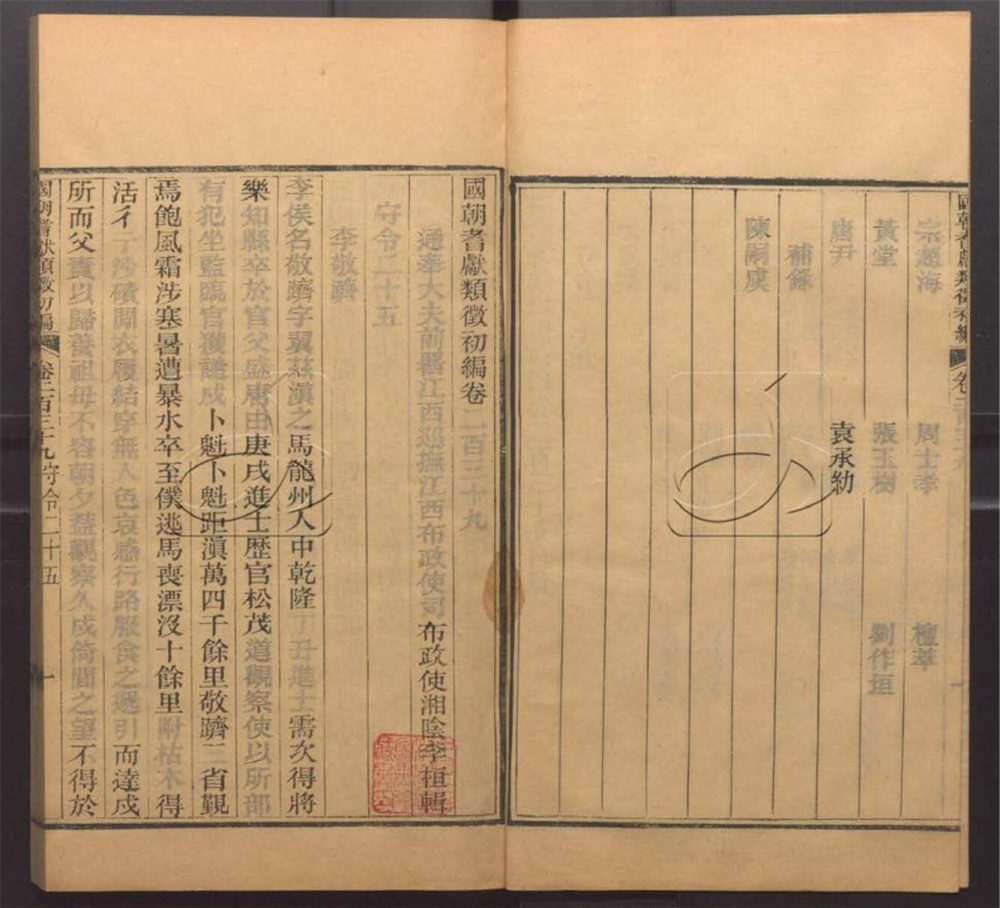 國朝耆獻類徵初編
宗超海
周士孝
檀萃
黃堂
張玉樹
劉作垣
唐尹
袁承紡
補錄
陳嗣虞
國朝耆獻類徵初編卷二百三十九
通奉大夫前署江西巡撫江西布政使司布政使湘陰李桓輯
守令二十五
李敬躋
李侯名敬躋字翼茲滇之馬龍州人中乾隆丁丑進士需次得將
樂知縣卒於官父盛唐由庚戌進士歷官松茂道觀察使以所部
有犯坐監臨官獲譴戍卜魁卜魁距滇萬四千餘里敬躋二省覲
焉飽風霜涉寒暑遭暴水卒至僕逃馬喪漂沒十餘里附枯木得
活彳亍沙磧間衣履結穿無人色哀感行路服食之遞引而達戍
所而父責以歸養祖母不容朝夕蓋觀察久戍倚閭之望不得於
國朝耆獻類徵初編 卷二百三十九 守令二十五 一